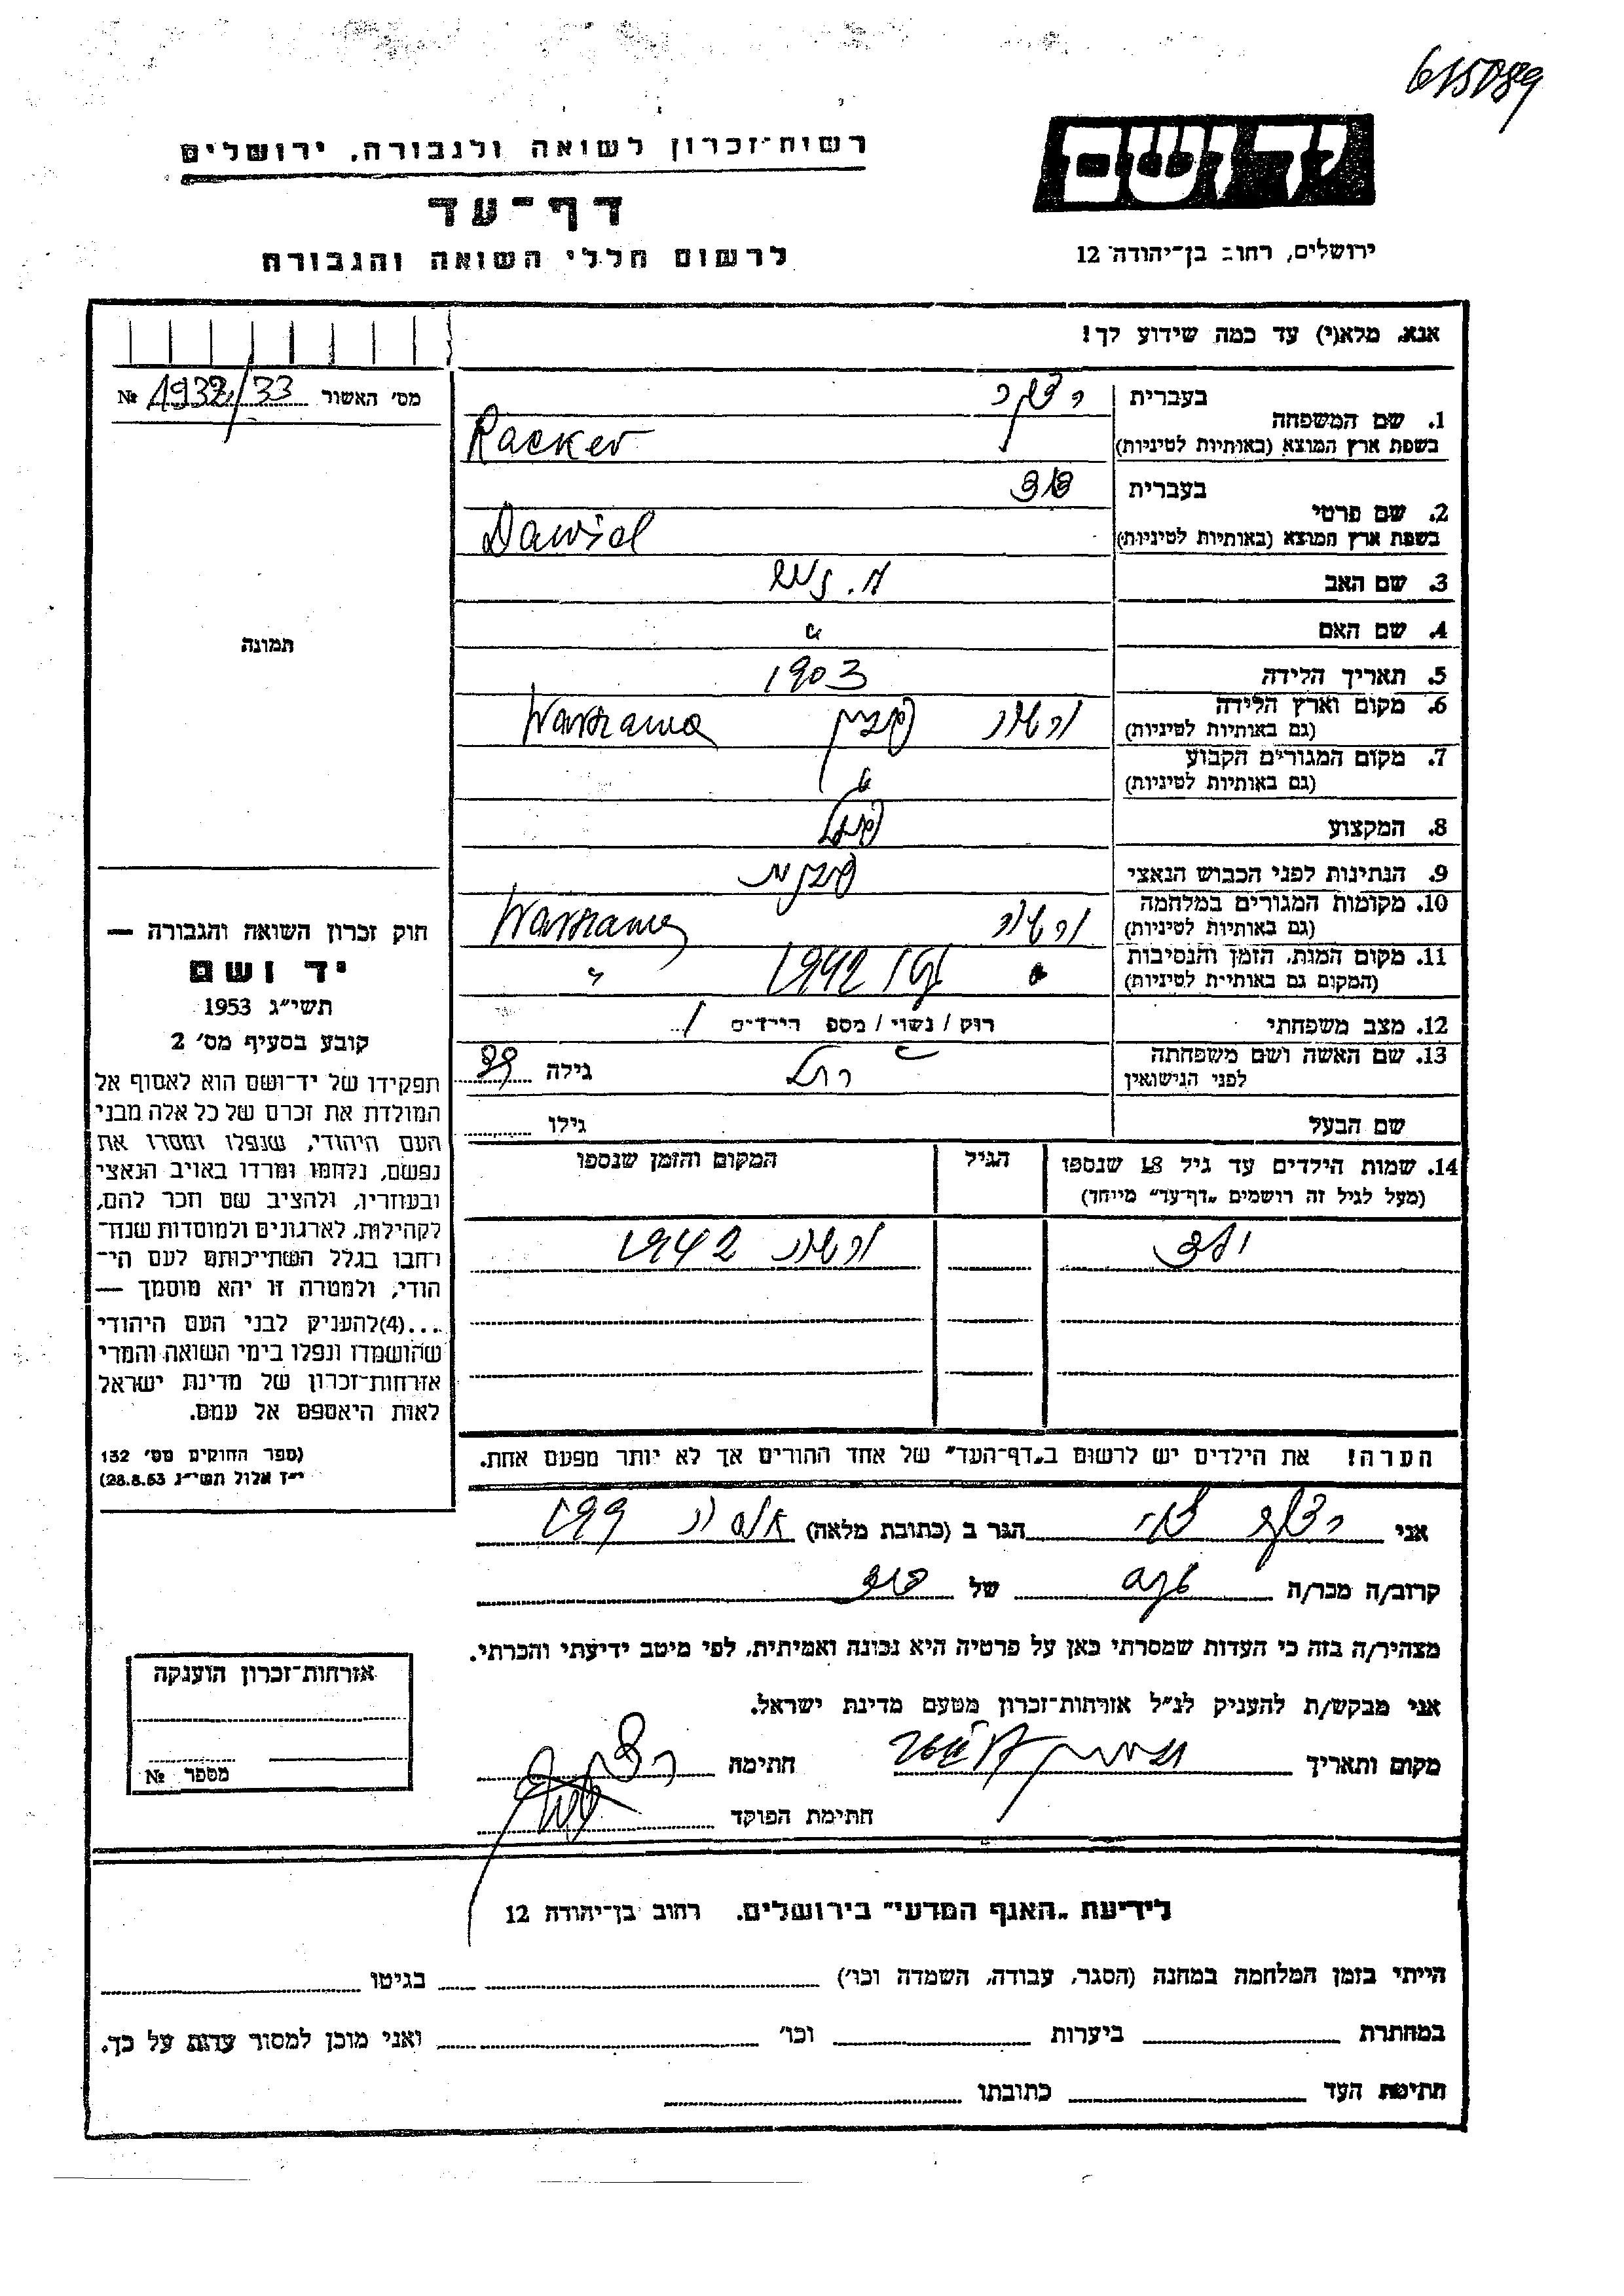 615089
יד ושם
רשות־זכרון לשואה ולגבורה, ירושלים
דף־עד
לרשום חללי השואה והגבורה
ירושלים, רחוב בן־יהודה 12
אנא, מלא(י) עד כמה שידוע לך!
מס׳ האשור 1932/33 №
תמונה
1. שם המשפחה בעברית
בשפת ארץ המוצא (באותיות לטיניות) Racker
2. שם פרטי בעברית דוד
בשפת ארץ המוצא (באותיות לטיניות) Dawid
3. שם האב
4. שם האם
5. תאריך הלידה 1903
6. מקום וארץ הלידה ורשה פולין Warszawa
(גם באותיות לטיניות)
7. מקום המגורים הקבוע "
(גם באותיות לטיניות)
8. המקצוע
9. הנתינות לפני הכבוש הנאצי פולנית
10. מקומות המגורים במלחמה ורשה Warszawa
(גם באותיות לטיניות)
11. מקום המות, הזמן והנסיבות " 1942 "
(המקום גם באותיות לטיניות)
12. מצב משפחתי רווק / נשוי / מספר הילדים 1
13. שם האשה ושם משפחתה רחל גילה
לפני הנישואין
שם הבעל גילו
14. שמות הילדים עד גיל 18 שנספו הגיל המקום והזמן שנספו
(מעל לגיל זה רושמים „דף־עד” מייחד)
ורשה 1942
הערה! את הילדים יש לרשום ב„דף־העד” של אחד ההורים אך לא יותר מפעם אחת.
אני הגר ב (כתובת מלאה)
קרוב/ה מכר/ה של
מצהיר/ה בזה כי העדות שמסרתי כאן על פרטיה היא נכונה ואמיתית, לפי מיטב ידיעתי והכרתי.
אני מבקש/ת להעניק לנ״ל אזרחות־זכרון מטעם מדינת ישראל.
מקום ותאריך חתימה
חתימת הפוקד
חוק זכרון השואה והגבורה —
יד ושם
תשי״ג 1953
קובע בסעיף מס׳ 2
תפקידו של יד־ושם הוא לאסוף אל
המולדת את זכרם של כל אלה מבני
העם היהודי, שנפלו ומסרו את
נפשם, נלחמו ומרדו באויב הנאצי
ובעוזריו, ולהציב שם וזכר להם,
לקהילות, לארגונים ולמוסדות שנח־
רחבו בגלל השתייכותם לעם הי־
הודי, ולמטרה זו יהא מוסמך —
...(4)להעניק לבני העם היהודי
שהושמדו ונפלו בימי השואה והמרי
אזרחות־זכרון של מדינת ישראל
לאות היאספם אל עמם.
(ספר החוקים מס׳ 132
י״ז אלול תשי״ג 28.8.53)
אזרחות־זכרון הוענקה
מספר №
לידיעת „האגף המדעי” בירושלים, רחוב בן־יהודה 12
הייתי בזמן המלחמה במחנה (הסגר, עבודה, השמדה וכו׳) בגיטו
במחתרת ביערות וכו׳ ואני מוכן למסור עדות על כך.
חתימת העד כתובתו